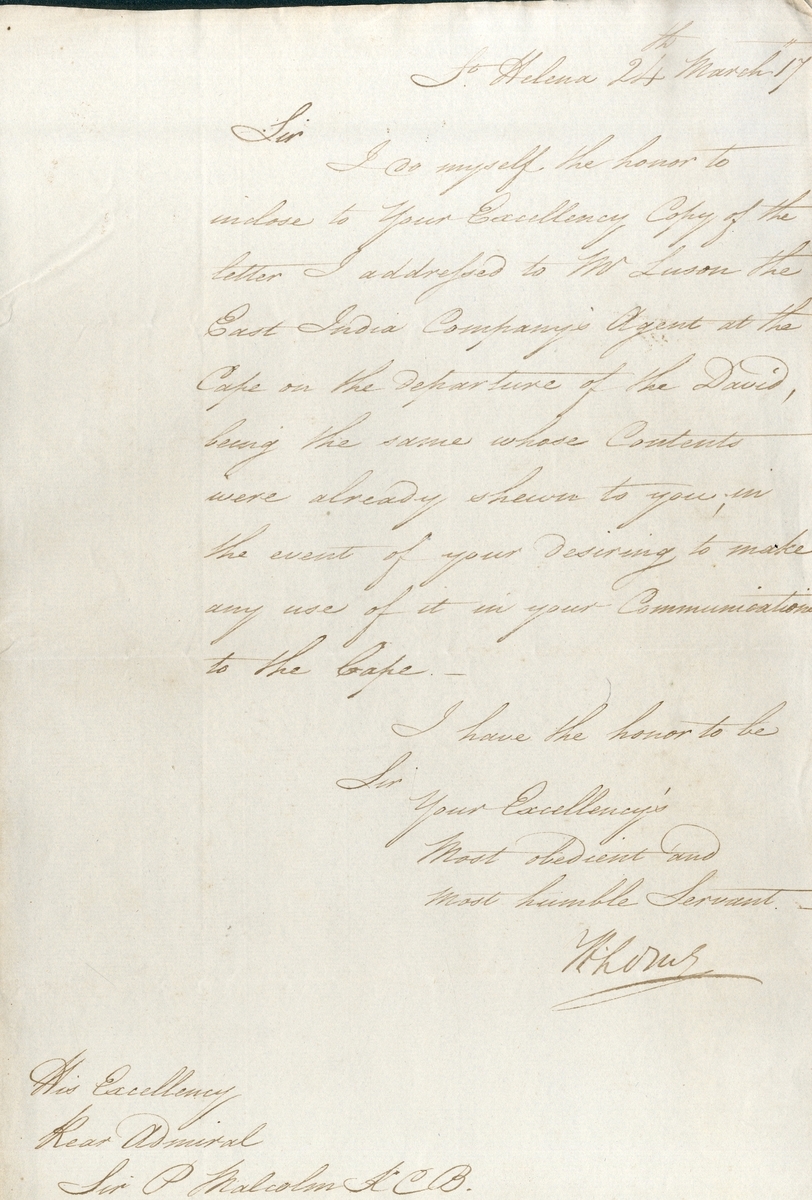 St. Helena 24th March 17
Sir
I do myself the honor to
inclose to Your Excellency Copy of the
letter I addressed to Mr Luson the
East India Company's Agent at the
Cape on the departure of the David,
being the same whose Contents
were already shewn to you, in
the event of your desiring to make
any use of it in your Communications
to the Cape. —
I have the honor to be
Sir
Your Excellency's
Most obedient and
most humble Servant. —
H Lowe
His Excellency
Rear Admiral
Sir P Malcolm K C B.